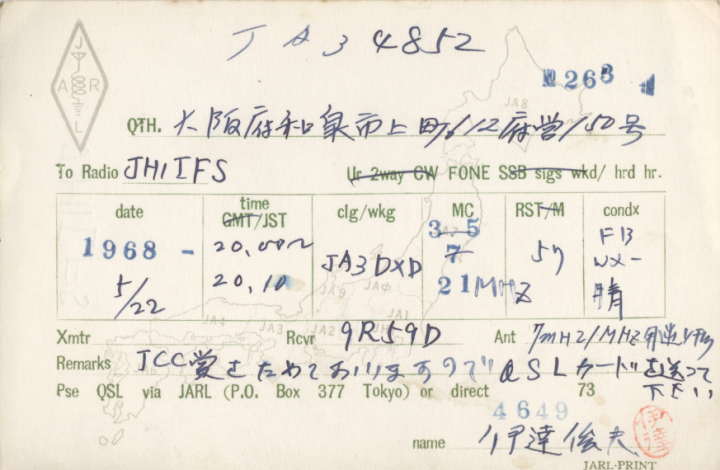 JA3 4852
JARL
№ 263
QTH. 大阪府和泉市上町612府営150号
To Radio JH1IFS Ur 2way CW FONE SSB sigs wkd/ hrd hr.
date time GMT/JST clg/wkg MC RST/M condx
1968 - 5/22 20,00~ 20,10 JA3DXD 3.5 7 21MHz 57 FB WX- 晴
JA8
JA9 JAφ
JA4 JA3 JA2 JA1
Xmtr Rcvr 9R59D Ant 7MHz/MHz
Remarks JCC賞をためておりますので QSLカードを送って下さい
Pse QSL via JARL (P.O. Box 377 Tokyo) or direct 73
4649
name 伊達俊夫 伊達
JARL-PRINT